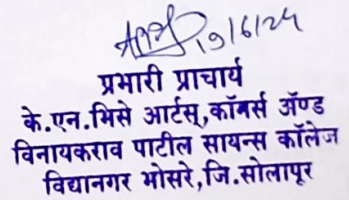 19/6/24
प्रभारी प्राचार्य
के.एन.भिसे आर्टस्,कॉमर्स ॲण्ड
विनायकराव पाटील सायन्स कॉलेज
विद्यानगर भोसरे,जि.सोलापूर